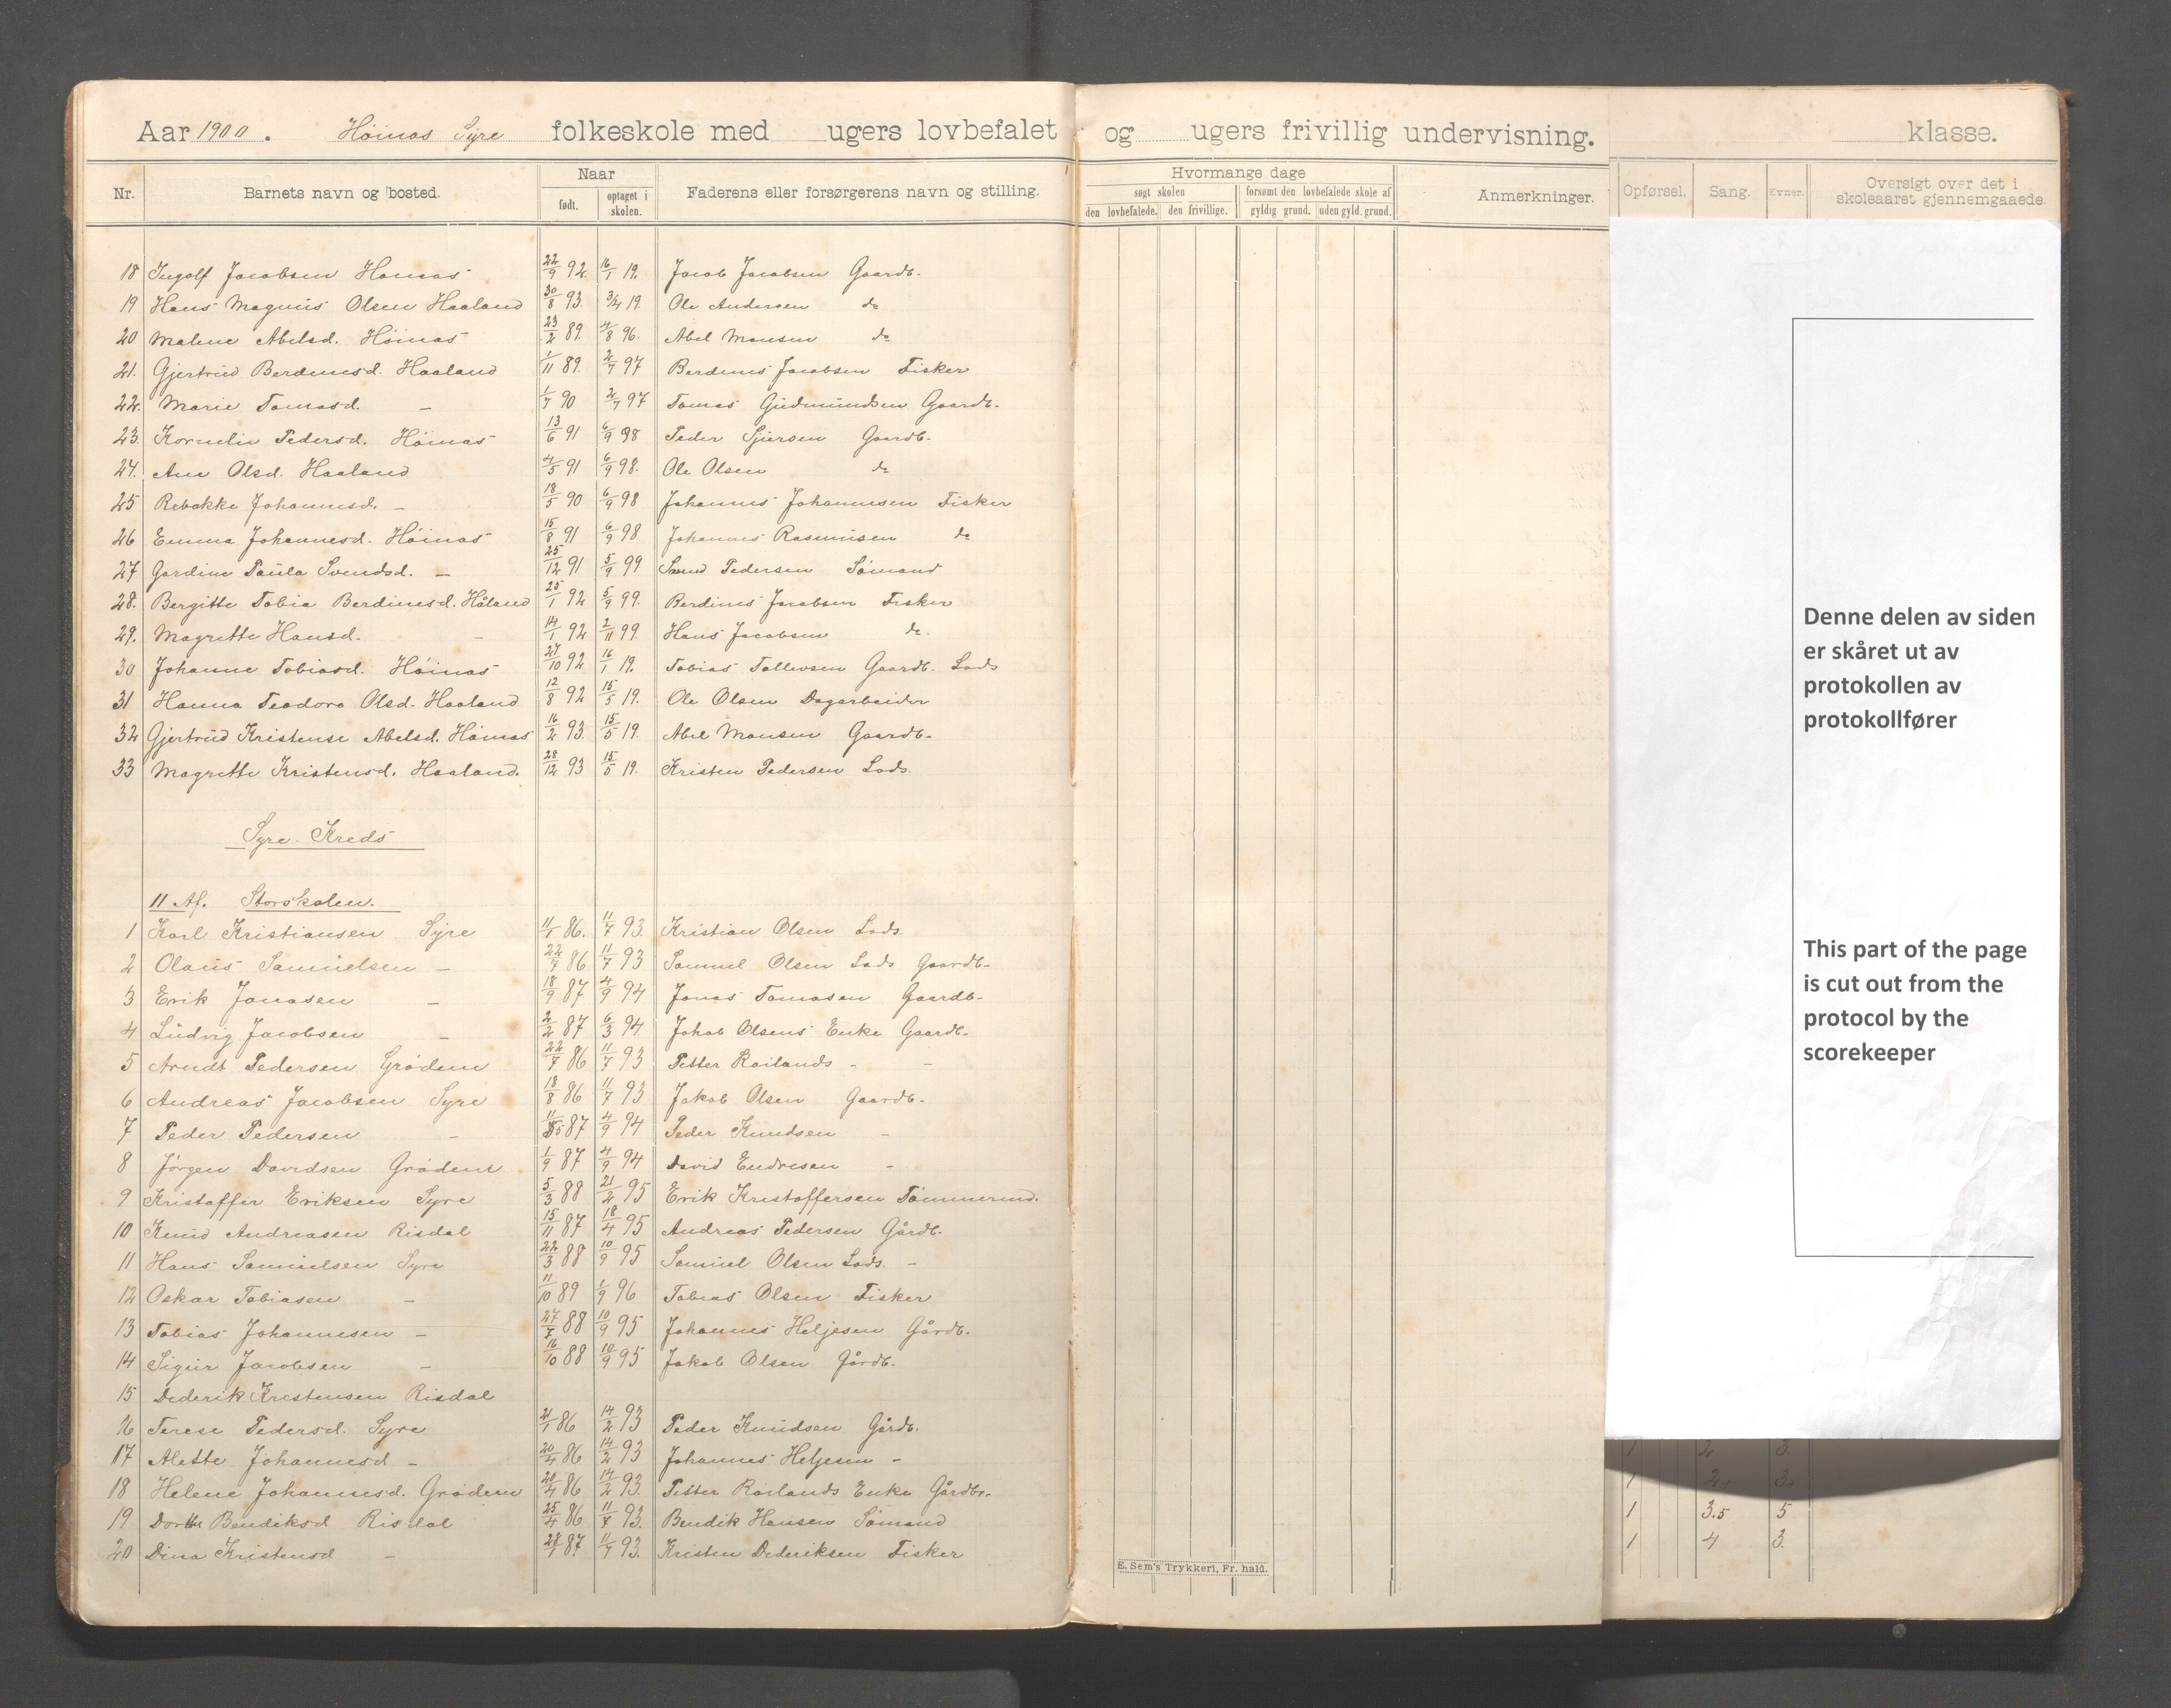 Aar 1900. Höinas Syre folkeskole med ugers lovbefalet og ugers frivillig undervisning. klasse.
Nr. Barnets navn og bosted. Naar født. optaget i skolen. Faderens eller forsørgerens navn og stilling. Hvormange dage søgt skolen den lovbefalede. den frivillige. forsømt den lovbefalede skole af gyldig grund. uden gyld. grund. Anmerkninger. Opførsel. Sang. Evner. Oversigt over det i skoleaaret gjennemgaaede.
18 Ingolf Jacobsen Hömas 22/9 92 16/1 19. Jacob Jacobsen Gaardb.
19 Hans Magnus Olsen Haaland 30/8 93. 3/4 19. Ole Andersen do
20 Malene Abelsd. Höinas 23/2 89. 4/8 96. Abel Monsen do
21. Gjertrud Berdinesd. Haaland 1/11 89. 2/7 97 Berdines Jacobsen Fisker
22. Marie Tomasd. - 1/7 90 2/7 97 Tomas Gudmundsen Gaardb.
23. Kornelie Pedersd. Höinas 13/6 91 6/9 98 Peder Sjursen Gaardb.
24. Ane Olsd. Haaland 4/5 91 6/9 98. Ole Olsen do
25 Rebakke Johannesd. - 18/5 90 6/9 98 Johannes Johannesen Fisker
26 Emma Johannesd. Höinas 15/8 91 6/9 98 Johannes Rasmusen do
27 Gardine Paula Svendsd. - 25/12 91 5/9 99 Svend Pedersen Sömand
28. Bergitte Tobia Berdinesd. Håland 25/1 92 5/9 99. Berdines Jacobsen Fisker
29. Magrette Hansd. - 14/1 92 2/11 99. Hans Jacobsen do
30 Johanne Tobiasd. Höinas 27/10 92 16/1 19. Tobias Tollevsen Gaardb. Lods
31 Hanna Teodora Olsd. Haaland 12/8 92 15/5 19. Ole Olsen Dagarbeider
32 Gjertrud Kristense Abelsd. Höinas 16/2 93. 15/5 19. Abel Monsen Gaardb.
33 Magrette Kristensd. Haaland. 28/12 93 15/5 19. Kristen Pedersen Lods.
Syre Kreds
II Af. Storskolen.
1 Karl Kristiansen Syre 11/1 86. 11/7 93. Kristian Olsen Lods.
2 Olaus Samuelsen - 22/7 86 11/7 93 Samuel Olsen Lods Gaardb.
3 Erik Jonasen - 18/9 87 4/9 94 Jonas Tomasen Gaardb.
4 Ludvig Jacobsen - 2/2 87 6/3 94 Jakob Olsens Enke Gaardb.
5 Arndt Pedersen Grödem 22/7 86 11/7 93 Petter Roilands - -
6 Andreas Jacobsen Syre 18/8 86 11/7 93 Jakob Olsen Gaardb.
7 Peder Pedersen - 87 4/9 94 Peder Knudsen -
8 Jörgen Davidsen Grödem 1/9 87 4/9 94 David Endresen -
9 Kristoffer Eriksen Syre 5/3 88 21/2 95 Erik Kristoffersen Tömmermd.
10 Knud Andreasen Risdal 15/11 87 18/4 95 Andreas Pedersen Gårdb.
11 Hans Samuelsen Syre 22/3 88 10/9 95 Samuel Olsen Lods. -
12 Oskar Tobiasen - 11/10 89 1/9 96 Tobias Olsen Fisker
13 Tobias Johannesen - 27/7 88 10/9 95 Johannes Heljesen Gårdb.
14 Sigur Jacobsen - 16/10 88 10/9 95 Jakob Olsen Gårdb.
15 Dederik Kristensen Risdal
16 Terese Pedersd. Syre 21/1 86 14/2 93 Peder Knudsen Gårdb.
17 Alette Johannesd - 20/4 86 14/2 93 Johannes Heljesen -
18 Helene Johannesd. Grödem 20/4 86 14/2 93. Petter Roilands Enke Gårdbr.
19 Dorthe Bendiksd Risdal 25/4 86 11/7 93. Bendik Hansen Sömand
20 Dina Kristensd - 28/1 87 11/7 93. Kristen Dederiksen Fisker
E. Sem's Trykkeri, Fr. hald.
Denne delen av siden
er skåret ut av
protokollen av
protokollfører
This part of the page
is cut out from the
protocol by the
scorekeeper
1 2 3
1 2+ 3+
1 3.5 5
1 4 3.